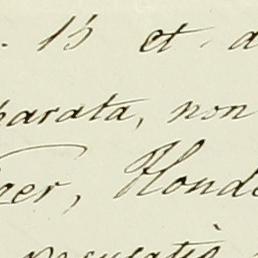 . 15 et a
parata, non
er, Hond